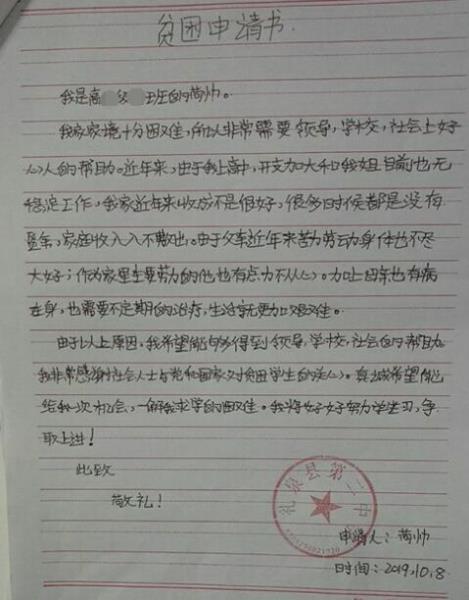 贫困申请书
我是高 级 班的苟帅。
我家家境十分困难,所以非常需要领导,学校,社会上好
心人的帮助。近年来,由于我上高中,开支加大和我姐目前也无
稳定工作,我家近年来收成不是很好,很多时候都是没有
盈余,家庭收入入不敷出。由于父亲近年来苦力劳动身体也不尽
大好;作为家里主要劳力的他也有点力不从心。加上母亲也有病
在身,也需要不定期的治疗,生活就更加艰难。
由于以上原因,我希望能够得到领导,学校,社会的帮助。
我非常感谢社会人士与党和国家对贫困学生的关心。真诚希望能
给我一次机会,一解我求学的困难。我将好好努力学习,争
取上进!
此致
敬礼!
礼泉县第二中
申请人:苟帅
时间:2019.10.8